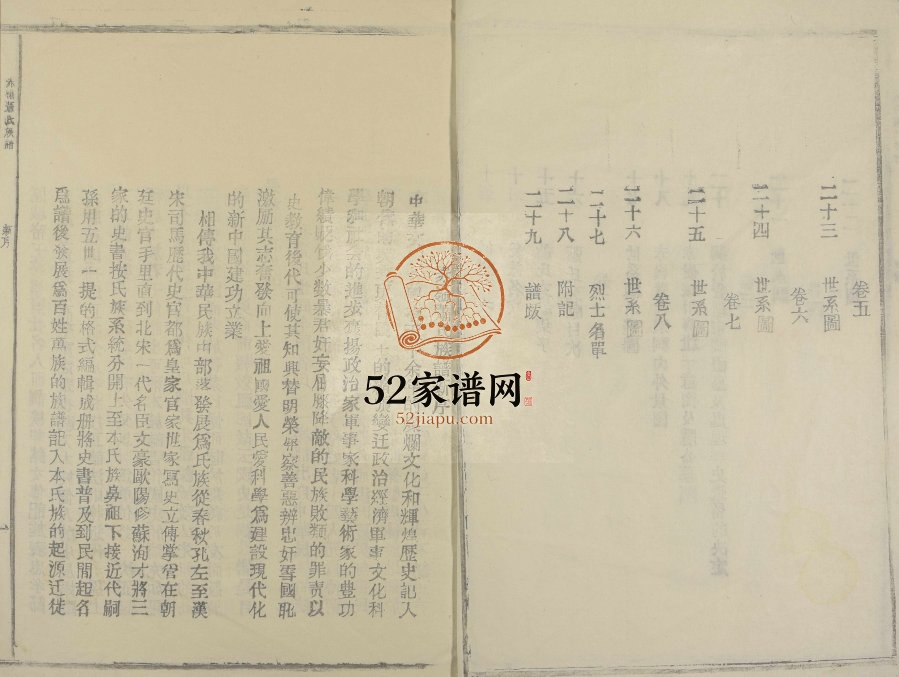 卷五
二十三 世系圖
卷六
二十四 世系圖
卷七
二十五 世系圖
卷八
二十六 世系圖
二十七 烈士名單
二十八 附記
二十九 譜跋
52家谱网
52jiapu.com
族譜
中華 爛文化和輝煌歷史記人
朝 的 變迁政治經濟軍事文化科
學和 的進步 揚政治家軍事家科學藝術家的豊功
偉績 少數暴君奸妄屈膝降敵的民族敗類的罪責以
史教育後代可使其知興替明榮辱察善惡辨忠奸雪國恥
激励其志奮發向上愛祖國愛人民愛科學爲建設現代化
的新中國建功立業
相傳我中華民族由部落發展爲氏族從春秋孔左至漢
宋司馬歷代史官都爲皇家官家世家寫史立傳掌管在朝
廷史官手里直到北宋一代名臣文豪歐陽修蘇洵才將三
家的史書按氏族系統分開上至本氏族鼻祖下接近代嗣
孫用五世一提的格式編輯成册將史書普及到民間起名
爲譜後發展爲百姓萬族的族譜記入本氏族的起源迁徒
氏族譜